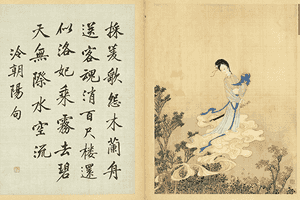 採菱歌怨木蘭舟
送客魂消百尺樓還
似洛妃乘霧去碧
天無際水空流
冷朝陽句